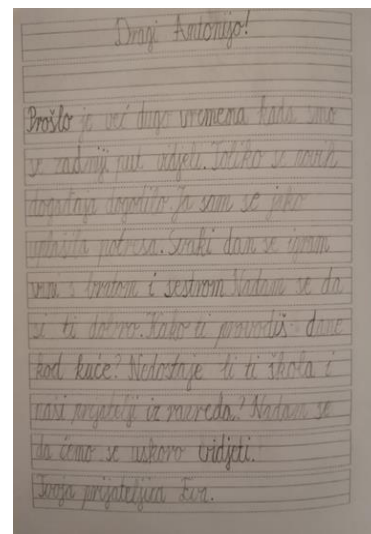 Dragi Antonijo!
Prošlo je već dugo vremena kada smo
se zadnji put vidjeli. Toliko se novih
događaja dogodilo. Ja sam se jako
uplašila potresa. Svaki dan se igram
vani s bratom i sestrom. Nadam se da
si ti dobro. Kako ti provodiš dane
kod kuće? Nedostaje li ti škola i
naši prijatelji iz razreda? Nadam se
da ćemo se uskoro vidjeti.
Tvoja prijateljica Eva.